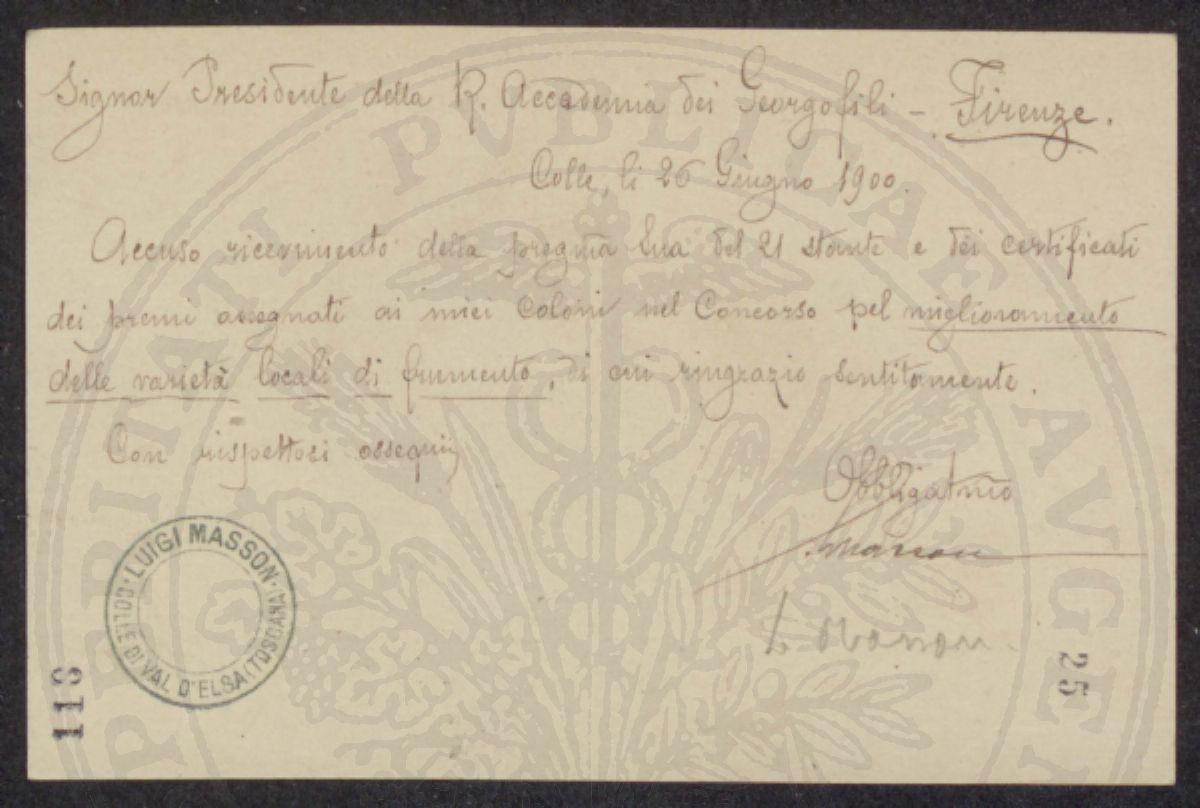 Signor Presidente della R. Accademia dei Georgofili – Firenze.
Colle, li 26 Giugno 1900.
Accuso ricevimento della pregma Sua del 21 stante e dei certificati
dei premi assegnati ai miei Coloni nel Concorso pel miglioramento
delle varietà locali di frumento, di cui ringrazio sentitamente.
Con rispettosi ossequij
Obbligatmo
LMasson
L Masson
LUIGI MASSON
COLLE DI VAL D'ELSA (TOSCANA)
118
25
PVBLICAE